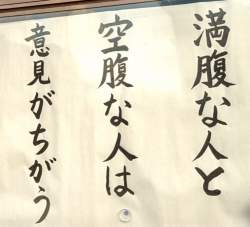 満腹な人と
空腹な人は
意見がちがう